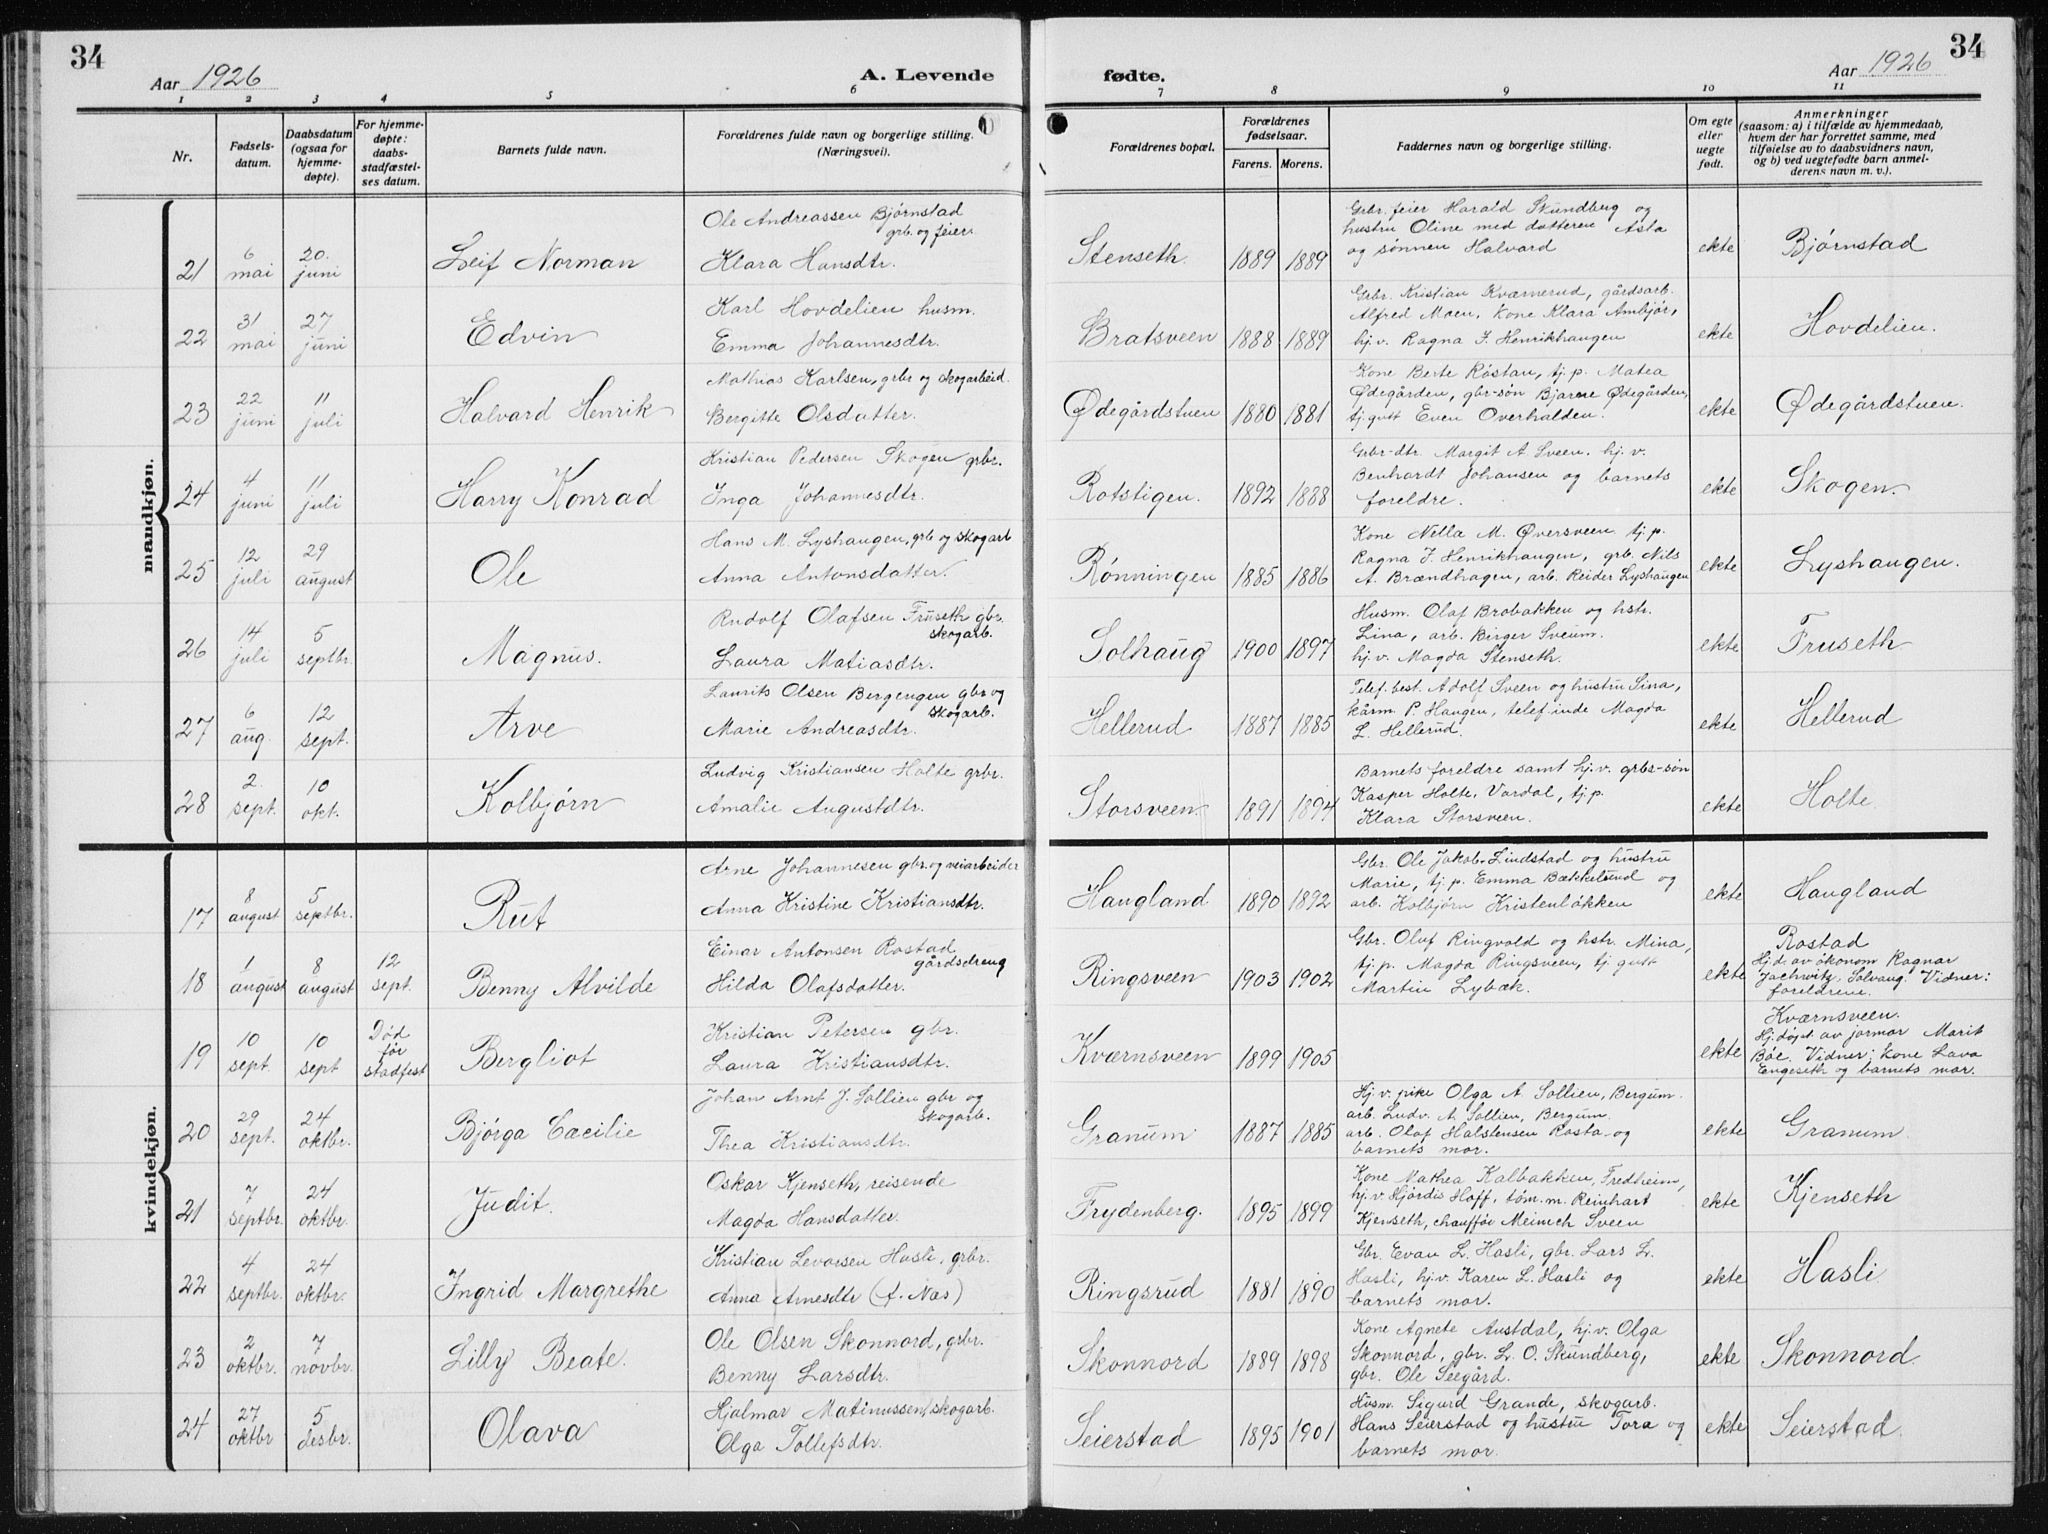 34
Aar 1926
A. Levende
fødte.
Aar 1926
34
1 2 3 4 5 6 7 8 9 10 11
Nr.
Fødsels-
datum.
Daabsdatum
(ogsaa for
hjemme-
døpte).
For hjemme-
døpte:
daabs-
stadfæstel-
ses datum.
Barnets fulde navn.
Forældrenes fulde navn og borgerlige stilling.
(Næringsvei).
Forældrenes bopæl.
Forældrenes
fødselsaar.
Farens. Morens.
Faddernes navn og borgerlige stilling.
Om egte
eller
uegte
født.
Anmerkninger
(saasom: a) i tilfælde av hjemmedaab,
hvem der har forrettet samme, med
tilføielse av to daabsvidners navn,
og b) ved uegtefødte barn anmel-
derens navn m. v.).
mandkjøn.
21
6
mai
20.
juni
Leif Norman
Ole Andreassen Bjørnstad
grb. og feier
Klara Hansdtr.
Stenseth
1889 1889
Grbr. feier Harald Skundberg og
hustru Oline med datteren Asta
og sønnen Halvard
ekte
Bjørnstad
22
31
mai
27
juni
Edvin
Karl Hovdelien husm.
Emma Johannesdtr.
Bratsveen
1888 1889
Grbr. Kristian Kværnerud, gårdsarb.
Alfred Moen, kone Klara Ambjør,
hj.v. Ragna J. Henrikhaugen
ekte
Hovdelien.
23
22
juni
11
juli
Halvard Henrik
Mathias Karlsen, grbr og skogarbeid.
Bergitte Olsdatter.
Ødegårdstuen
1880 1881
Kone Berte Røstan, tj.p. Matea
Ødegården, gbr-søn Bjarne Ødegården,
tj.gutt Even Overhalden.
ekte
Ødegårdstuen.
24
4
juni
11
juli
Harry Konrad
Kristian Pedersen Skogen grbr.
Inga Johannesdtr.
Rotstigen.
1892 1888
Grbr-dtr. Margit A. Sveen. hj.v.
Benhardt Johansen og barnets
foreldre.
ekte
Skogen.
25
12
juli
29
august
Ole
Hans M. Lyshaugen, grb og skogarb
Anna Antonsdatter.
Rønningen
1885 1886
Kone Nella M. Øversveen tj.p.
Ragna J. Henrikhaugen, grb. Nils
A. Brændhagen, arb. Reider Lyshaugen
ekte
Lyshaugen.
26
14
juli
5
septbr.
Magnus.
Rudolf Olafsen Fruseth gbr.
skogarb.
Laura Matiasdtr.
Solhaug
1900 1897
Husm. Olaf Brobakken og hstr.
Lina, arb. Birger Sveum.
hj.v. Magda Stenseth.
ekte
Fruseth
27
6
aug.
12
sept.
Arve
Laurits Olsen Bergengen gbr og
skogarb.
Marie Andreasdtr.
Hellerud
1887 1885
Telef.best. Adolf Sveen og hustru Sina,
kårm. P. Haugen, telef.inde Magda
L. Hellerud.
ekte
Hellerud
28
2.
sept.
10
okt.
Kolbjørn
Ludvig Kristiansen Holte grbr.
Amalie Augustdtr.
Storsveen.
1891 1894
Barnets foreldre samt hj.v. grbr-søn
Kasper Holte, Vardal, tj.p.
Klara Storsveen.
ekte
Holte
kvindekjøn.
17
8
august
5
septbr.
Rut
Arne Johannesen gbr. og veiarbeider
Anna Kristine Kristiansdtr.
Haugland
1890 1892
Gbr. Ole Jakob. Lindstad og hustru
Marie, tj.p. Emma Bækkelund og
arb. Kolbjørn Kristenløkken
ekte
Haugland
18
1
august
8
august
12
sept.
Benny Alvilde
Einar Antonsen Rostad
gårdsdreng
Hilda Olafsdatter.
Ringsveen
1903 1902
Gbr. Oluf Ringvold og hstr. Mina,
tj.p. Magda Ringsveen, tj.gutt
Martin Lybæk.
ekte
Rostad
Hj.d. av økonom Ragnar
Jachwitz, Solvang. Vidner:
foreldrene.
19
10
sept.
10
sept
Død
før
stadfest
Bergliot
Kristian Petersen gbr.
Laura Kristiansdtr.
Kværnsveen
1899 1905
ekte
Kværnsveen.
Hj.døpt av jormor Marit
Bøe. Vidner: kone Lava
Engeseth og barnets mor.
20
29
sept.
24
oktbr.
Bjørga Cæcilie
Johan Arnt J. Sollien gbr og
skogarb.
Thea Kristiansdtr.
Granum
1887 1885
Hj.v. pike Olga A. Sollien, Bergum.
arb. Ludv. A. Sollien, Bergum.
arb. Olaf Halstensen Rosta og
barnets mor.
ekte
Granum
21
7
septbr.
24
oktbr.
Judit.
Oskar Kjenseth, reisende
Magda Hansdatter.
Frydenberg.
1895 1899
Kone Mathea Kalbakken, Fredheim,
hj.v. Hjørdis Hoff, tøm.m. Reinhart
Kjenseth, chauffør Meinich Sveen
ekte
Kjenseth
22
4
septbr.
24
oktbr.
Ingrid Margrethe
Kristian Levorsen Hasli, grbr.
Anna Arnesdtr (f. Næs)
Ringsrud
1881 1890
Gbr. Evan L. Hasli, gbr. Lars L.
Hasli, hj.v. Karen L. Hasli og
barnets mor.
ekte
Hasli
23
2
oktbr.
7
novbr.
Lilly Beate.
Ole Olsen Skonnord, grbr.
Benny Larsdtr.
Skonnord
1889 1898
Kone Agnete Austdal, hj.v. Olga
Skonnord, gbr. L. O. Skundberg,
gbr. Ole Seegård.
ekte
Skonnord.
24
27
oktbr
5
desbr.
Olava
Hjalmar Matinussen, skogarb.
Olga Tollefsdtr.
Seierstad
1895 1901
Husm. Sigurd Grande, skogarb.
Hans Seierstad og hustru Tora og
barnets mor.
ekte
Seierstad.